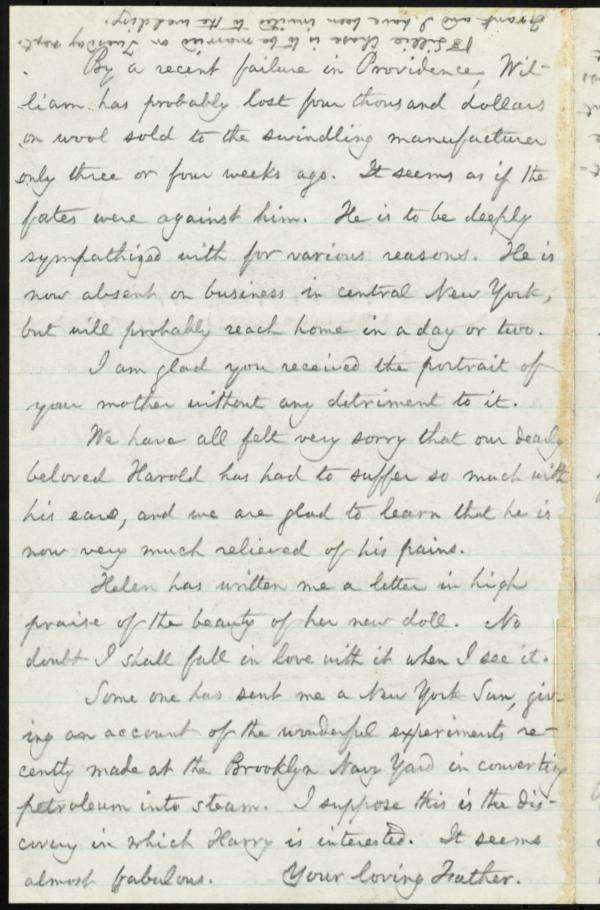 By a recent failure in Providence, Wil-
liam has probably lost four thousand dollars
on wool sold to the swindling manufacturer
only three or four weeks ago. It seems as if the
fates were against him. He is to be deeply
sympathized with for various reasons. He is
now absent on business in central New York,
but will probably reach home in a day or two.
I am glad you received the portrait of
your mother without any detriment to it.
We have all felt very sorry that our dearly
beloved Harold has had to suffer so much with
his ears, and we are glad to learn that he is
now very much relieved of his pains.
Helen has written me a letter in high
praise of the beauty of her new doll. No
doubt I shall fall in love with it when I see it.
Some one has sent me a New York Sun, giv-
ing an account of the wonderful experiments re-
cently made at the Brooklyn Navy Yard in converting
petroleum into steam. I suppose this is the dis-
covery in which Harry is interested. It seems
almost fabulous. Your loving Father.
Lillie Chase is to be married on Tuesday next.
Frank and I have been invited to the wedding.